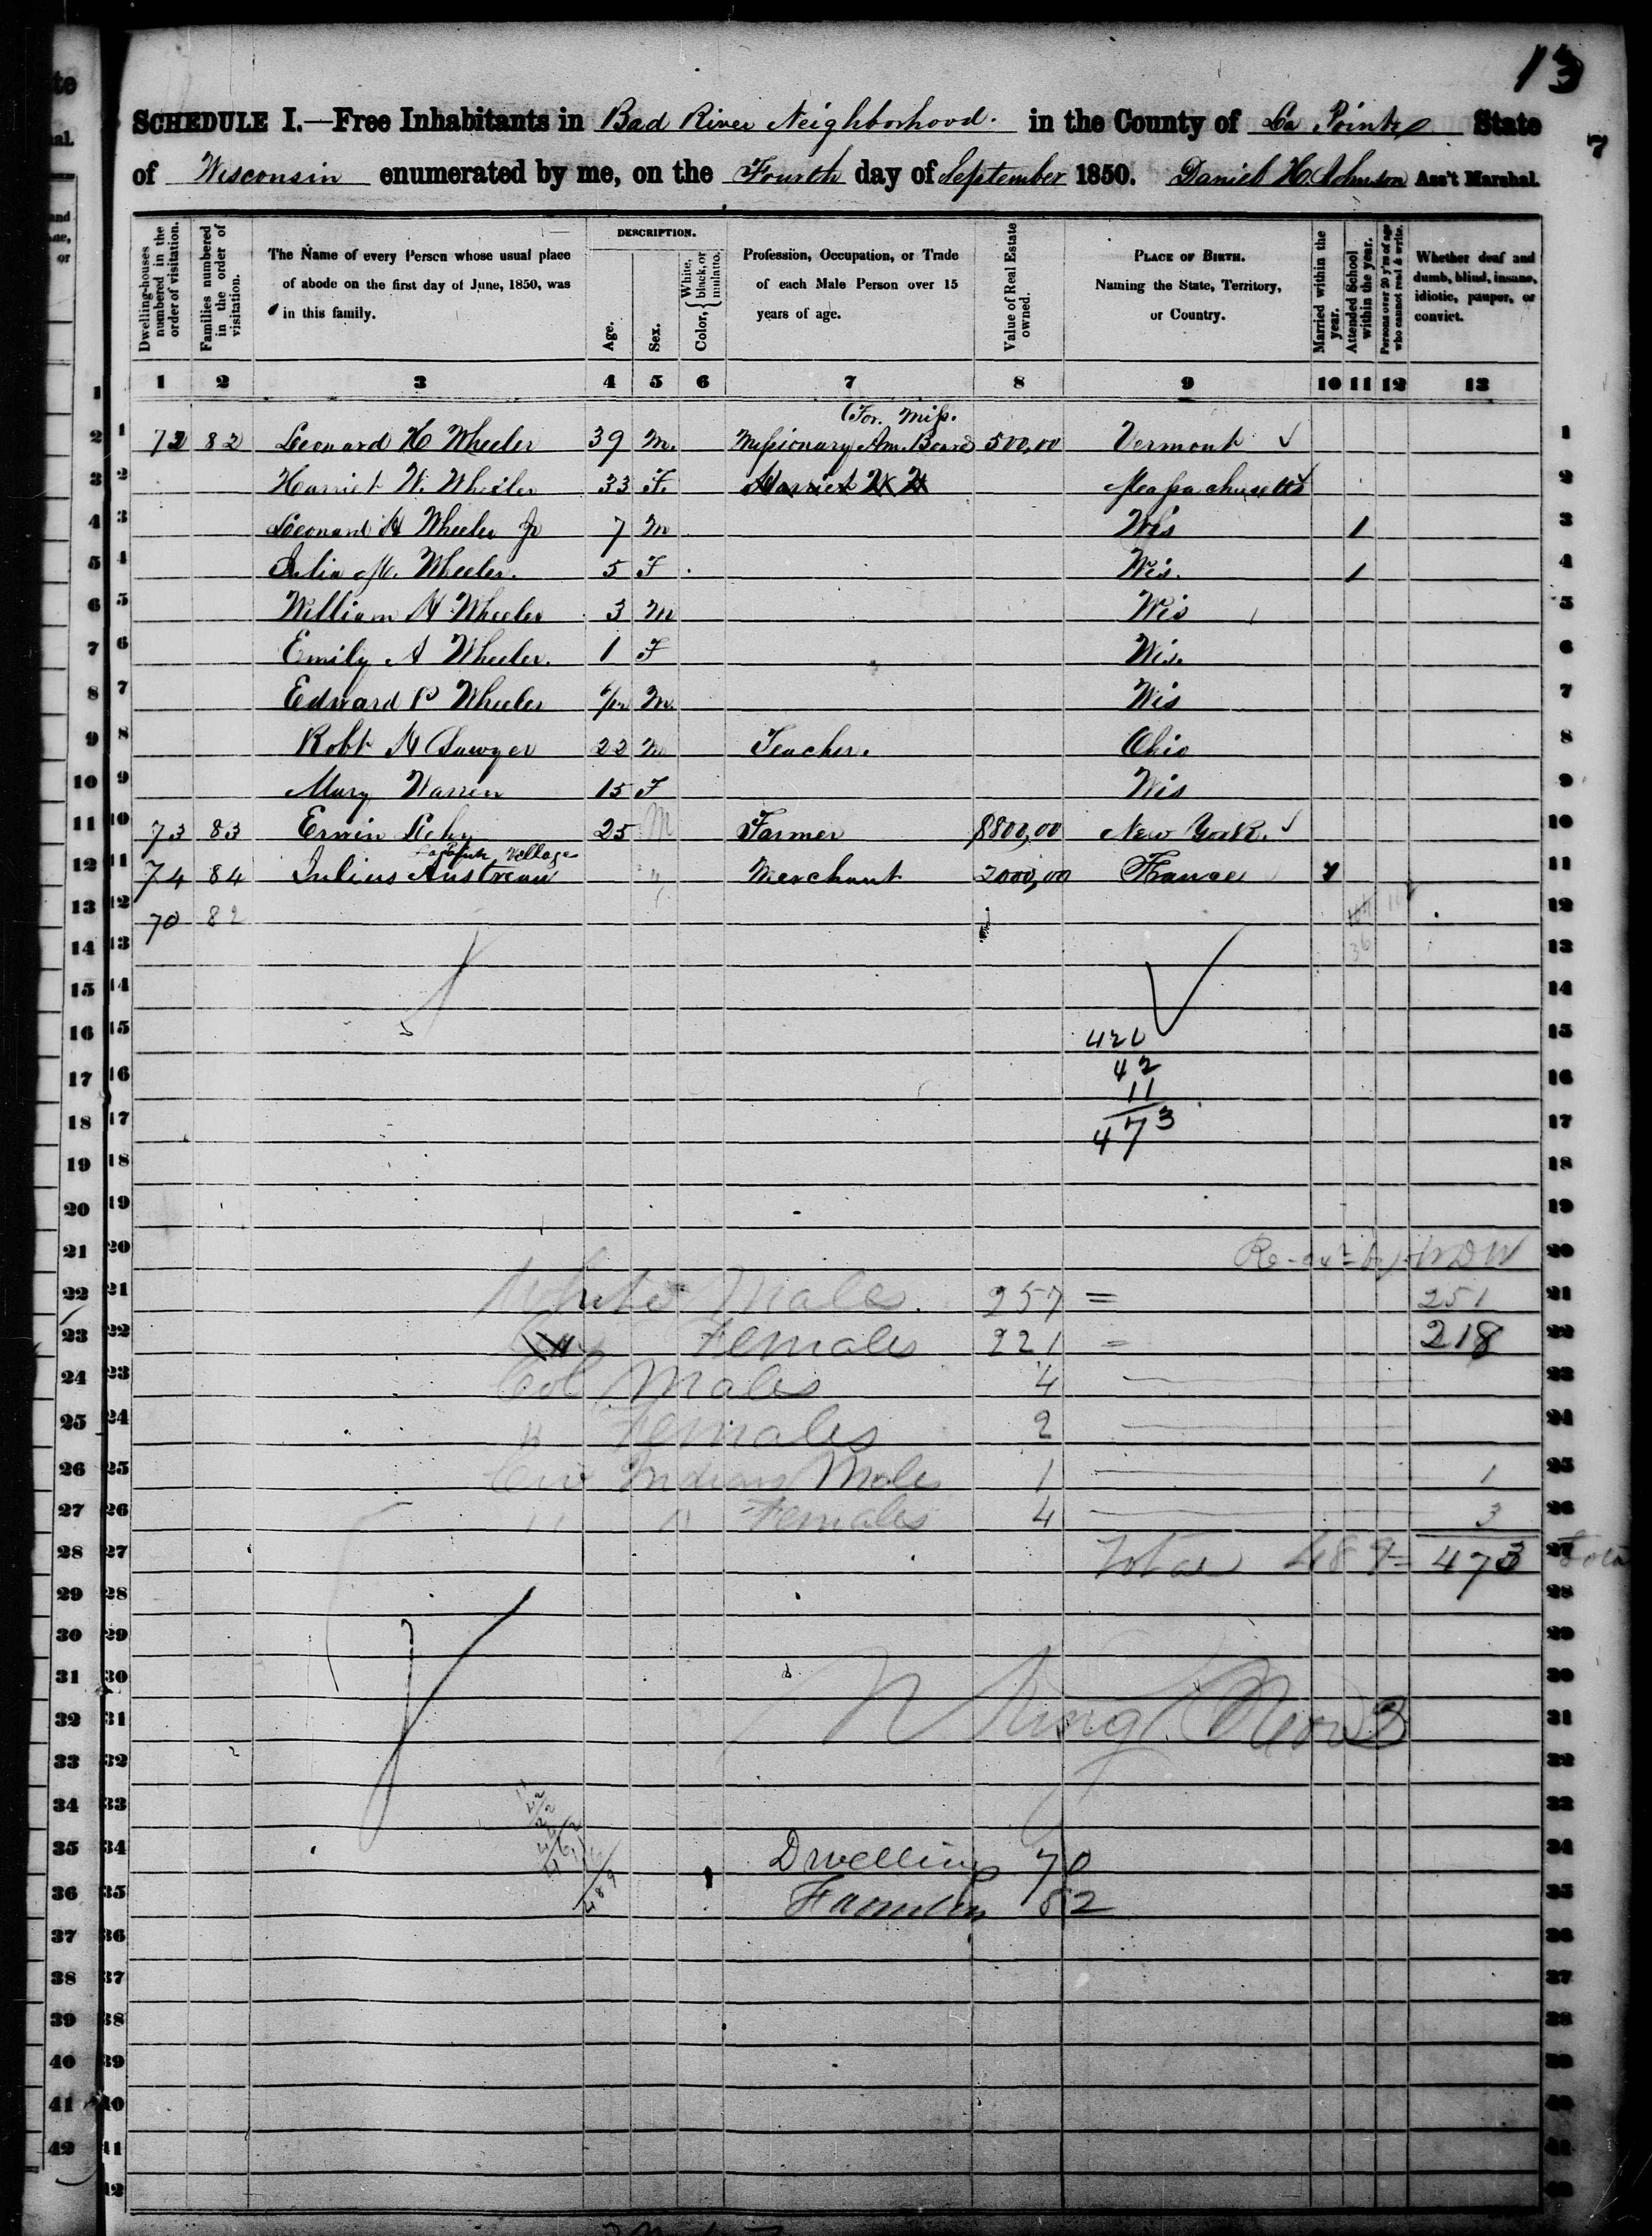 13
7
SCHEDULE I.—Free Inhabitants in Bad River Neighborhood. in the County of La Pointe State
of Wisconsin enumerated by me, on the Fourth day of September 1850. Daniel H. Johnson Ass't Marshal.
Dwelling-houses numbered in the order of visitation.
Families numbered in the order of visitation.
The Name of every Person whose usual place of abode on the first day of June, 1850, was in this family.
DESCRIPTION.
Age.
Sex.
Color, { White, black, or mulatto.
Profession, Occupation, or Trade of each Male Person over 15 years of age.
Value of Real Estate owned.
PLACE OF BIRTH. Naming the State, Territory, or Country.
Married within the year.
Attended School within the year.
Persons over 20 y'rs of age who cannot read & write.
Whether deaf and dumb, blind, insane, idiotic, pauper, or convict.
1 2 3 4 5 6 7 8 9 10 11 12 13
(For. Miss.
1 72 82 Leonard H Wheeler 39 M. Missionary Am. Board 500,00 Vermont ✓ 1
2 Harriet W. Wheeler 33 F. Harriet W. W Massachusetts 2
3 Leonard H Wheeler Jr 7 M Wis 1 3
4 Julia M. Wheeler. 5 F Wis. 1 4
5 William H Wheeler 3 M Wis 5
6 Emily A Wheeler. 1 F Wis. 6
7 Edward P Wheeler M. Wis 7
8 Robt H Sawyer 22 M Teacher. Ohio 8
9 Mary Warren 15 F Wis 9
10 73 83 Erwin 25 M Farmer 8800,00 New York. ✓ 10
Village
11 74 84 Julius Austrian " Merchant 2000,00 France 1 11
12 70 82 12
13 36 13
14 14
15 420 15
16 42 16
11
17 473 17
18 18
19 19
20 WDW 20
21 White Males. 257 = 251 21
22 Females 221 = 218 22
23 Col Males 4 23
24 " Females 2 24
25 Civ Indians Males 1 1 25
26 " " Females 4 3 26
27 Total 489 = 473 27
28 28
29 29
30 30
31 31
32 32
33 33
34 Dwellings 70 34
35 489 Families 82 35
36 36
37 37
38 38
39 39
40 40
41 41
42 42